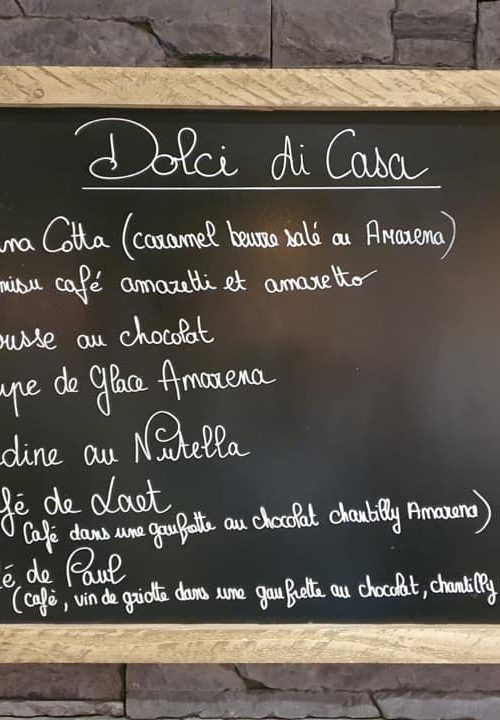 Dolci di Casa
na Cotta (caramel beurre salé ou Amarena)
misu café amaretti et amaretto
usse au chocolat
upe de Glace Amarena
dine au Nutella
fé de Laet
Café dans une gaufrette au chocolat chantilly Amarena)
é de Paul
(café, vin de griotte dans une gaufrette au chocolat, chantilly